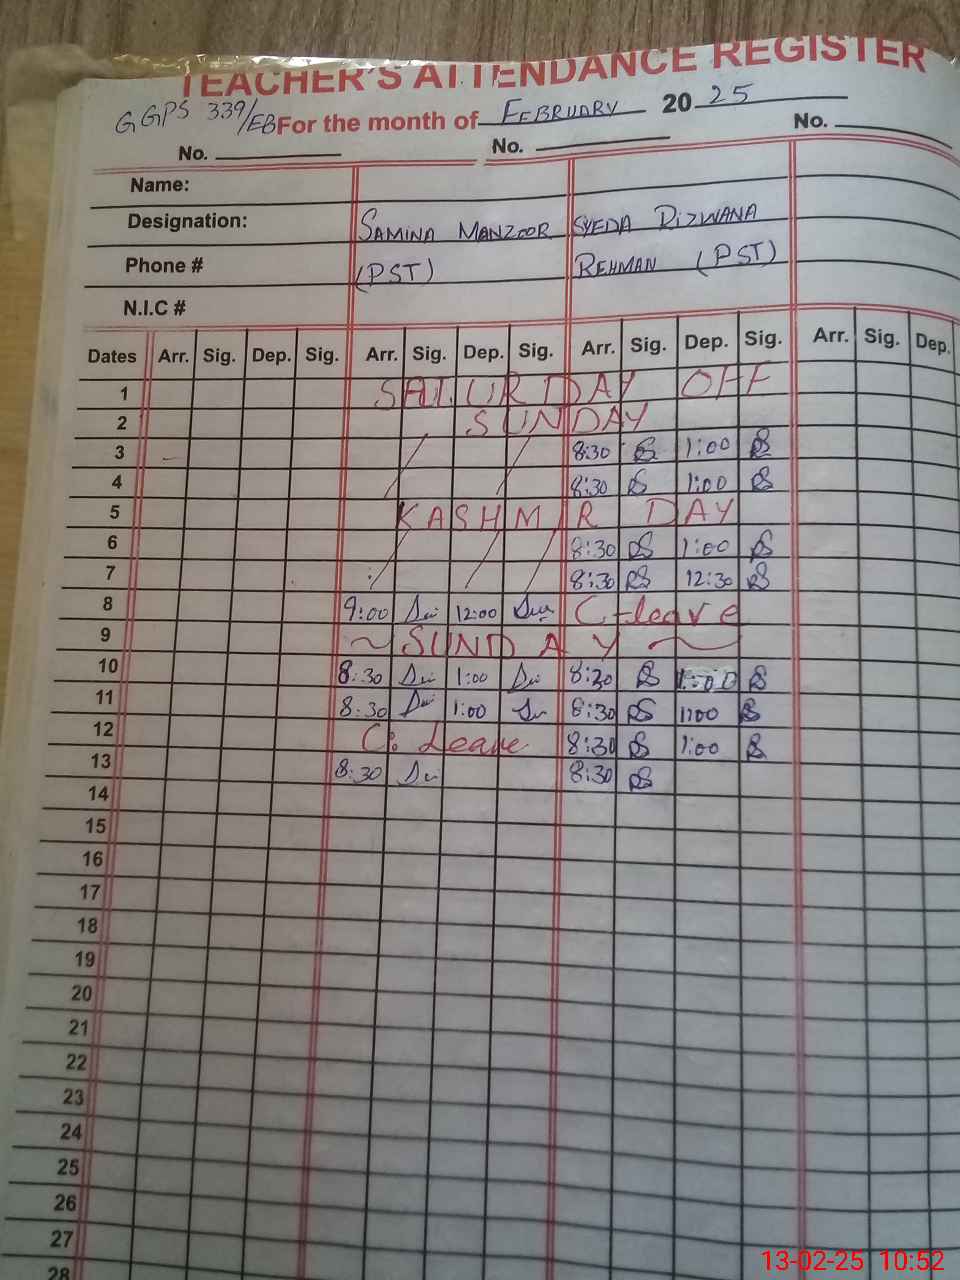 TEACHER'S ATTENDANCE REGISTER
GGPS 339/EB For the month of FEBRUARY 20 25
No. No. No.
Name:
Designation: SAMINA MANZOOR SYEDA RIZWANA
Phone # (PST) REHMAN (PST)
N.I.C #
Dates Arr. Sig. Dep. Sig. Arr. Sig. Dep. Sig. Arr. Sig. Dep. Sig. Arr. Sig. Dep.
1 SATURDAY OFF
2 SUNDAY
3 8:30 RS 1:00 RS
4 8:30 RS 1:00 RS
5 KASHMIR DAY
6 8:30 RS 1:00 RS
7 8:30 RS 12:30 RS
8 9:00 12:00 C-leave
9 ~ SUNDAY ~
10 8:30 1:00 8:30 RS 1:00 RS
11 8:30 1:00 8:30 RS 1:00 RS
12 C: Leave 8:30 RS 1:00 RS
13 8:30 8:30 RS
14
15
16
17
18
19
20
21
22
23
24
25
26
27
28
13-02-25 10:52